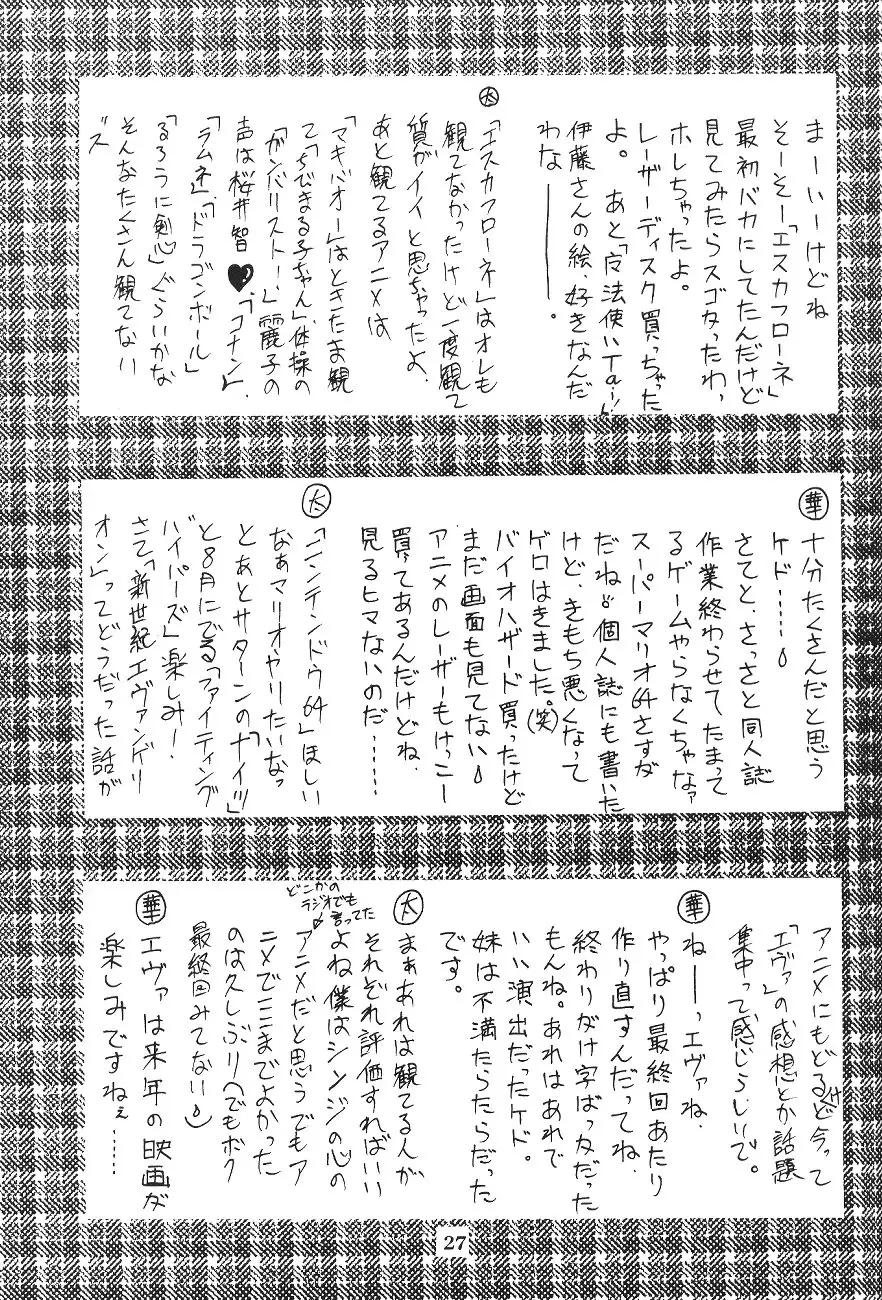 まーいーけどね
そーそー「エスカフローネ」
最初バカにしてたんだけど
見てみたらスゴかったわ,
ホレちゃったよ。
レーザーディスク買っちゃった
よ。 あと「魔法使いTai!」
伊藤さんの絵、好きなんだ
わな―――。
太
「エスカフローネ」はオレも
観てなかったけど一度観て
質がイイと思ちゃったよ.
あと観てるアニメは
「マキバオー」はときたま観
て「ちびまる子ちゃん」、体操の
「ガンバリスト!」麗子の
声は桜井智♥、「コナン」、
「ラムネ」、「ドラゴンボール」
「るろうに剣心」ぐらいかな
そんなたくさん観てない
ズ
華
十分たくさんだと思う
ケド……
さてと、さっさと同人誌
作業終わらせて、たまって
るゲームやらなくちゃなァ
スーパーマリオ64さすが
だね。個人誌にも書いた
けど、きもち悪くなって
ゲロはきました。(笑)
バイオハザード買ったけど
まだ画面も見てない
アニメのレーザーもけっこー
買ってあるんだけどね.
見るヒマないのだ……
太
「ニンテンドウ64」ほしい
なぁマリオやりたいなっ
とあとサターンの「ナイツ」
と8月にでる「ファイティング
バイパーズ」楽しみ!
さて「新世紀エヴァンゲリ
オン」ってどうだった話が
アニメにもどるけど今って
「エヴァ」の感想とか話題
集中って感じらしいで。
華
ねーーっエヴァね.
やっぱり最終回あたり
作り直すんだってね.
終わりがけ字ばっかだった
もんね。あれはあれで
いい演出だったケド。
妹は不満たらたらだった
です。
太
まぁあれは観てる人が
それぞれ評価すればいい
よね僕はシンジの心の
どこかの
ラジオでも
言ってた
アニメだと思うでもア
ニメでここまでよかった
のは久しぶり(でもボク
最終回みてない)
華
エヴァは来年の映画が
楽しみですねぇ……
27